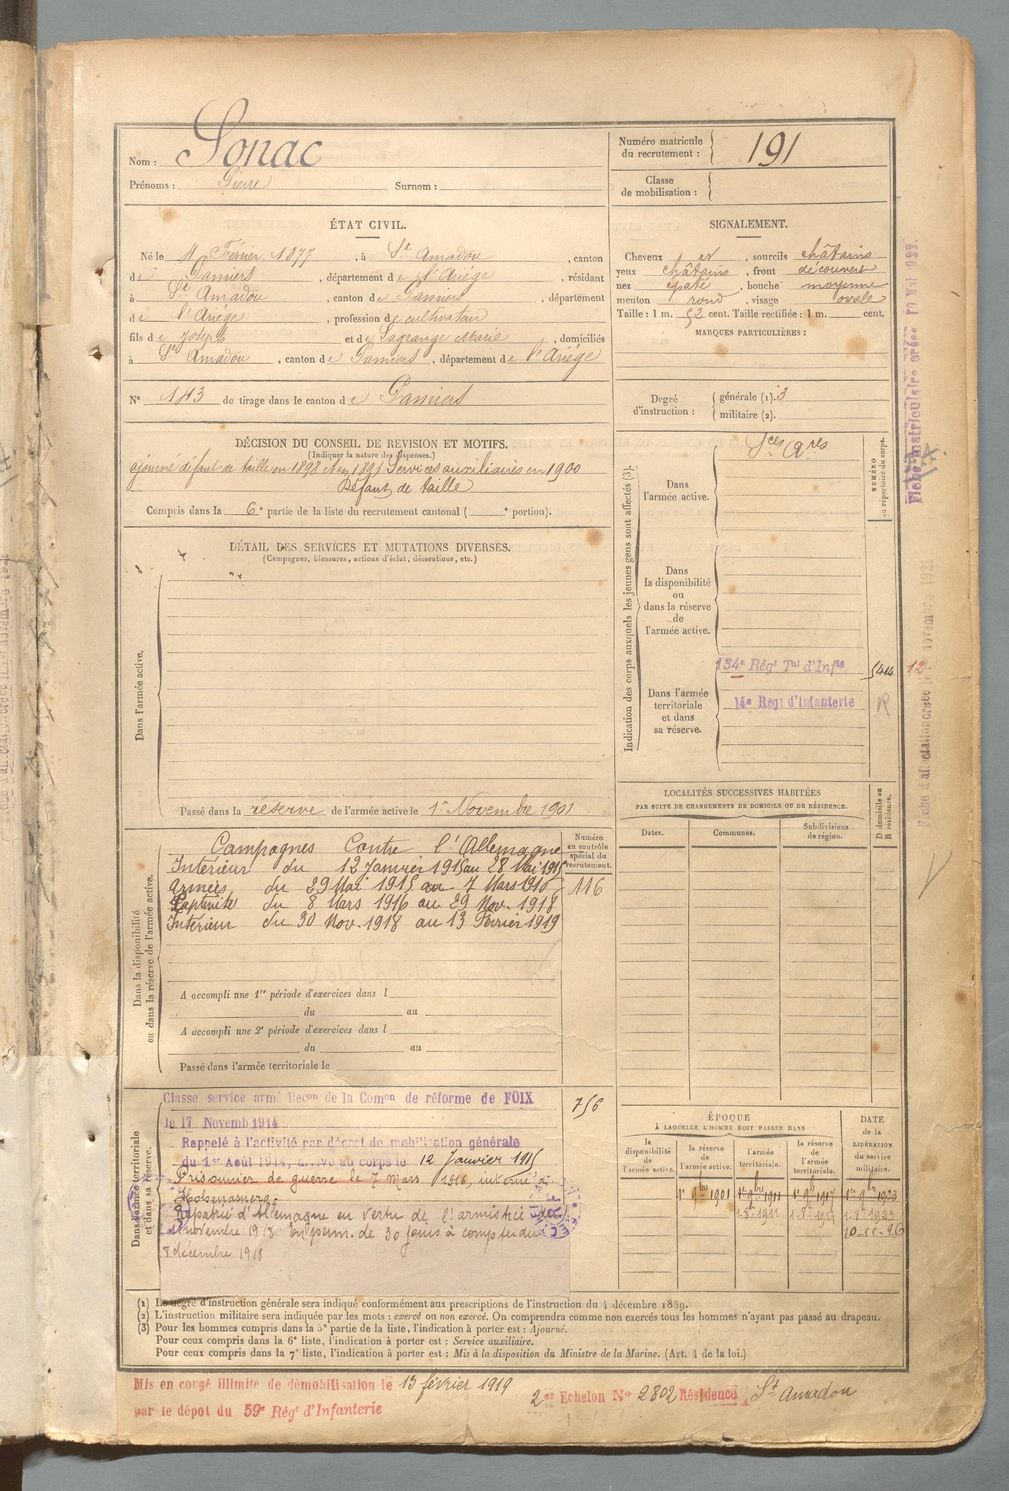 Nom : Sonac
Prénoms : Pierre Surnom :
Numéro matricule du recrutement : 191
Classe de mobilisation :
ÉTAT CIVIL.
Né le 11 Février 1877, à St Amadou, canton
de Pamiers, département de l'Ariège, résidant
à St Amadou, canton de Pamiers, département
de l'Ariège, profession de cultivateur
fils de Joseph et de Lagrange Marie, domiciliés
à St Amadou, canton de Pamiers, département de l'Ariège
N° 113 de tirage dans le canton de Pamiers
SIGNALEMENT.
Cheveux et, sourcils châtains
yeux châtains, front découvert
nez épaté, bouche moyenne
menton rond, visage ovale
Taille : 1 m. 52 cent. Taille rectifiée : 1 m. cent.
MARQUES PARTICULIÈRES :
Degré d'instruction : générale (1). 3
militaire (2).
DÉCISION DU CONSEIL DE REVISION ET MOTIFS.
(Indiquer la nature des dispenses.)
ajourné défaut de taille en 1898 et en 1899 Services auxiliaires en 1900
Défaut de taille
Compris dans la 6e partie de la liste du recrutement cantonal ( e portion).
DÉTAIL DES SERVICES ET MUTATIONS DIVERSES.
(Campagnes, blessures, actions d'éclat, décorations, etc.)
Dans l'armée active.
Passé dans la réserve de l'armée active le 1er Novembre 1901
Indication des corps auxquels les jeunes gens sont affectés (3).
NUMÉRO au répertoire du corps.
Dans l'armée active. Sces Axres
Dans la disponibilité ou dans la réserve de l'armée active.
Dans l'armée territoriale et dans sa réserve.
134e Régt Tal d'Infie 5414 12
14e Regt d'Infanterie R
LOCALITÉS SUCCESSIVES HABITÉES
PAR SUITE DE CHANGEMENTS DE DOMICILE OU DE RÉSIDENCE.
Dates. Communes. Subdivisions de région. D domicile ou R résidence.
Dans la disponibilité ou dans la réserve de l'armée active.
Numéro au contrôle spécial du recrutement.
116
Campagnes Contre l'Allemagne
Intérieur du 12 Janvier 1915 au 28 Mai 1915
Armées du 29 Mai 1915 au 7 Mars 1916
Captivité du 8 Mars 1916 au 29 Nov. 1918
Intérieur du 30 Nov. 1918 au 13 Février 1919
A accompli une 1re période d'exercices dans l
du au
A accompli une 2e période d'exercices dans l
du au
Passé dans l'armée territoriale le
Dans l'armée territoriale et dans sa réserve.
Classé service armé Décon de la Comon de réforme de FOIX
756
le 17 Novemb 1914
Rappelé à l'activité par décret de mobilisation générale
du 1er Août 1914, arrivé au corps le 12 Janvier 1915
Prisonnier de guerre le 7 mars 1916, interné à
Rapatrié d'Allemagne en vertu de l'armistice du
novembre 1918 En perm. de 30 jours à compter du
8 décembre 1918
ÉPOQUE
À LAQUELLE L'HOMME DOIT PASSER DANS
la disponibilité de l'armée active. la réserve de l'armée active. l'armée territoriale. la réserve de l'armée territoriale.
DATE de la LIBÉRATION du service militaire.
1er 9bre 1901 1er 9bre 1911 1er 9bre 1917 1er 9bre 1923
10-11-26
(1) Le degré d'instruction générale sera indiqué conformément aux prescriptions de l'instruction du 4 décembre 1889.
(2) L'instruction militaire sera indiquée par les mots : exercé ou non exercé. On comprendra comme non exercés tous les hommes n'ayant pas passé au drapeau.
(3) Pour les hommes compris dans la 5e partie de la liste, l'indication à porter est : Ajourné.
Pour ceux compris dans la 6e liste, l'indication à porter est : Service auxiliaire.
Pour ceux compris dans la 7e liste, l'indication à porter est : Mis à la disposition du Ministre de la Marine. (Art. 4 de la loi.)
Mis en congé illimité de démobilisation le 13 février 1919
par le dépôt du 59e Régt d'Infanterie
2er Echelon No 2802 Résidence, St Amadou
Fiche matriculaire créée